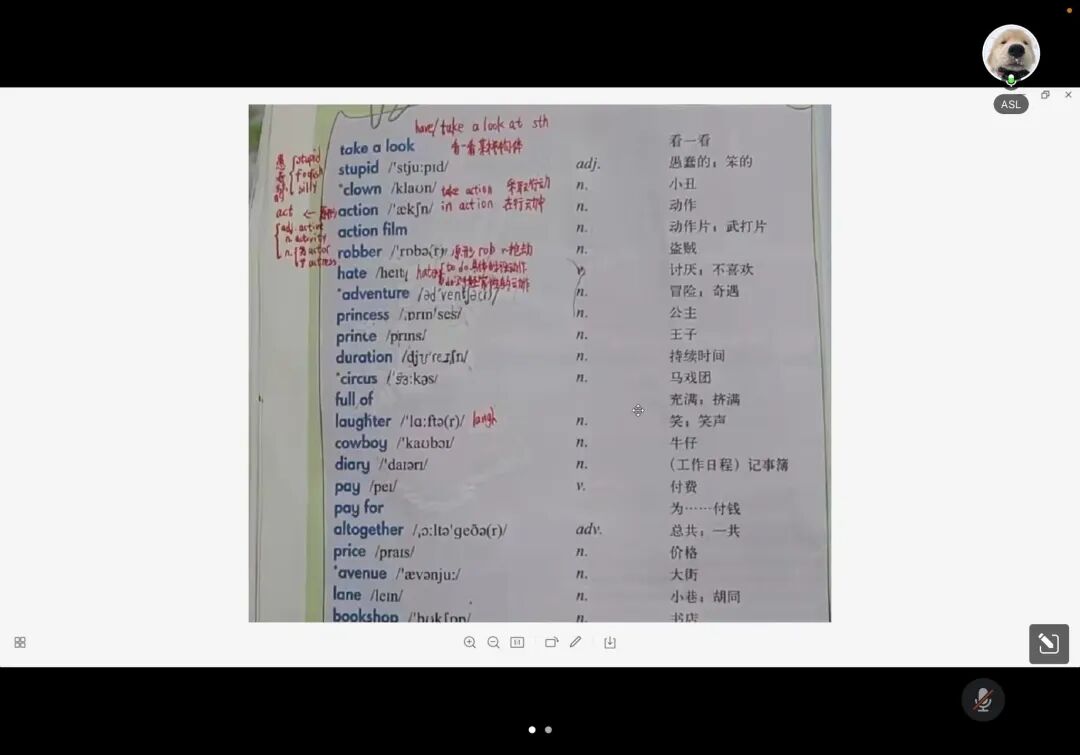 ASL
have/take a look at sth
take a look 看一看某样物体 看一看
stupid /'stju:pɪd/ adj. 愚蠢的；笨的
stupid
foolish
silly
*clown /klaʊn/ take action 采取行动 n. 小丑
action /'ækʃn/ in action 在行动中 n. 动作
act ←
adj. active
n. activity
n. 男 actor
女 actress
action film n. 动作片；武打片
robber /'rɒbə(r)/ 原形 rob v.抢劫 n. 盗贼
hate /heɪt/ hate to do 讨厌；不喜欢
*adventure /əd'ventʃə(r)/ n. 冒险；奇遇
princess /ˌprɪn'ses/ n. 公主
prince /prɪns/ n. 王子
duration /djʊ'reɪʃn/ n. 持续时间
*circus /'sɜ:kəs/ n. 马戏团
full of 充满；挤满
laughter /'lɑ:ftə(r)/ laugh n. 笑；笑声
cowboy /'kaʊbɔɪ/ n. 牛仔
diary /'daɪərɪ/ n. （工作日程）记事簿
pay /peɪ/ v. 付费
pay for 为……付钱
altogether /ˌɔ:ltə'geðə(r)/ adv. 总共；一共
price /praɪs/ n. 价格
*avenue /'ævənju:/ n. 大街
lane /leɪn/ n. 小巷；胡同
bookshop /'bʊkʃɒp/ n. 书店